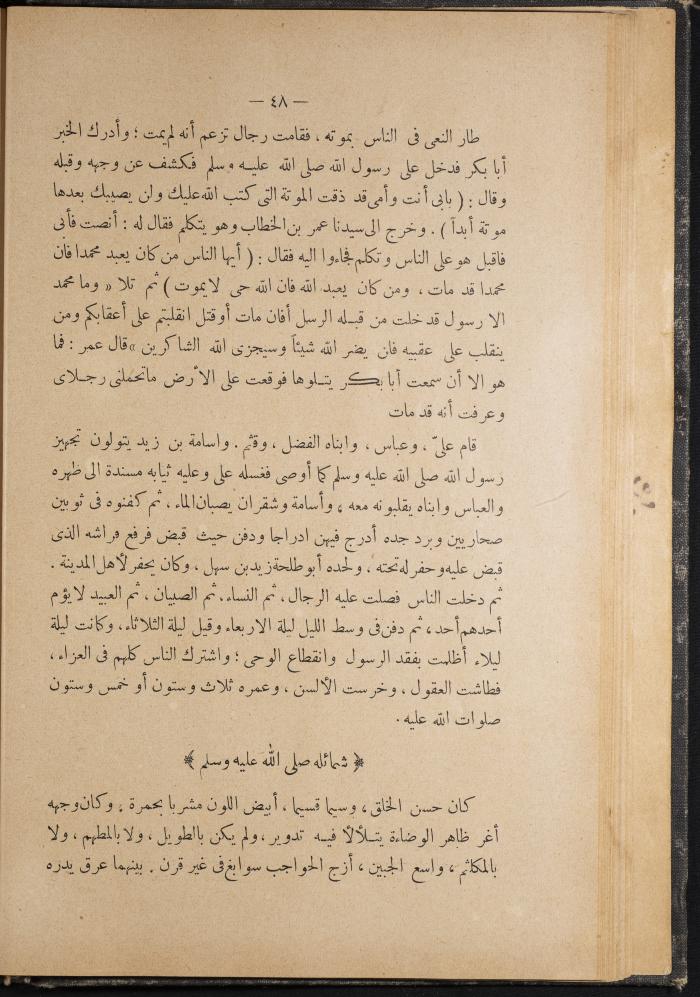 — ٤٨ —
طار النعى فى الناس بموته ، فقامت رجال تزعم أنه لم يمت ؛ وأدرك الخبر
أبا بكر فدخل على رسول الله صلى الله عليه وسلم فكشف عن وجهه وقبله
وقال : ( بابى أنت وأمى قد ذقت الموتة التى كتب الله عليك ولن يصيبك بعدها
موتة أبداً ) . وخرج الى سيدنا عمر بن الخطاب وهو يتكلم فقال له : أنصت فأبى
فاقبل هو على الناس وتكلم فجاءوا اليه فقال : ( أيها الناس من كان يعبد محمدا فان
محمدا قد مات ، ومن كان يعبد الله فان الله حى لايموت ) ثم تلا « وما محمد
الا رسول قد خلت من قبله الرسل أفان مات أوقتل انقلبتم على أعقابكم ومن
ينقلب على عقبيه فان يضر الله شيئاً وسيجزى الله الشاكرين » قال عمر : فما
هو الا أن سمعت أبا بكر يتلوها فوقعت على الأرض ماتحملنى رجلاى
وعرفت أنه قد مات
قام علىّ ، وعباس ، وابناه الفضل ، وقثم . واسامة بن زيد يتولون تجهيز
رسول الله صلى الله عليه وسلم كما أوصى فغسله على وعليه ثيابه مسندة الى ظهره
والعباس وابناه يقلبونه معه ، وأسامة وشقران يصبان الماء ، ثم كفنوه فى ثوبين
صحاريين وبرد جده أدرج فيهن ادراجا ودفن حيث قبض فرفع فراشه الذى
قبض عليه وحفر له تحته ، ولحده أبو طلحة زيد بن سهل ، وكان يحفر لأهل المدينة .
ثم دخلت الناس فصلت عليه الرجال ، ثم النساء ، ثم الصبيان ، ثم العبيد لا يؤم
أحدهم أحد ، ثم دفن فى وسط الليل ليلة الاربعاء وقيل ليلة الثلاثاء ، وكانت ليلة
ليلاء أظلمت بفقد الرسول وانقطاع الوحى ؛ واشترك الناس كلهم فى العزاء ،
فطاشت العقول ، وخرست الألسن ، وعمره ثلاث وستون أو خمس وستون
صلوات الله عليه .
﴿ شمائله صلى الله عليه وسلم ﴾
كان حسن الخلق ، وسيما قسيما ، أبيض اللون مشربا بحمرة . وكان وجهه
أغر ظاهر الوضاءة يتلألأ فيه تدوير ، ولم يكن بالطويل ، ولا بالمطهم ، ولا
بالمكلثم ، واسع الجبين ، أزج الحواجب سوابغ فى غير قرن . بينهما عرق يدره